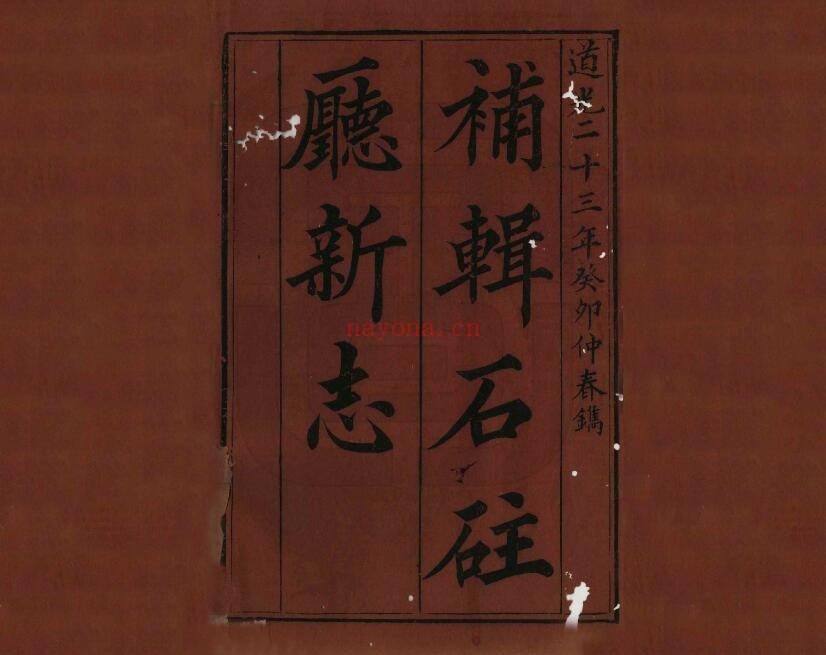 道光二十三年癸卯仲春鐫
補輯石砫
廳新志
nayona.cn